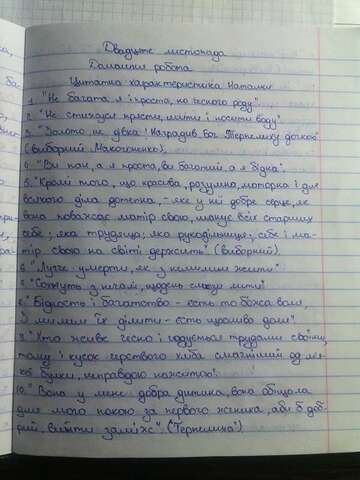 Двадцяте листопада
Домашня робота
Цитатна характеристика Наталки
1. "Не багата я і проста, но чесного роду".
2. "Не стижуся прясти, шити і носити воду"
3. "Золото, не дівка! Наградив бог Терпелиху дочкою"
(виборний Макогоненко).
4. "Ви пан, а я проста, ви богатий, а я бідна".
5. "Кромі того, що красива, розумна, моторна і для
всякого діла дотепна, - яке у неї добре серце, як
вона поважає матір свою, шанує всіх старших
себе; яка трудяща; яка рукодільниця; себе і ма-
тір свою на світі держить" (виборний)
6. "Лучче умерти, як з немилим жити"
7. "Сохнуть з нелюбом, щодень сльози лити"
"Бідность і богатство - есть то божа воля,
З милим їх ділити - есть щаслива доля"
9. "Хто живе чесно і годується трудами своїми,
тому і кусок черствого хліба смачніший од м'я-
кої булки, неправдою нажитої".
10. "Вона у мене добра дитина, вона обіцала
для мого покою за первого жениха, аби б доб-
рий, вийти заміж". (Терпелиха)